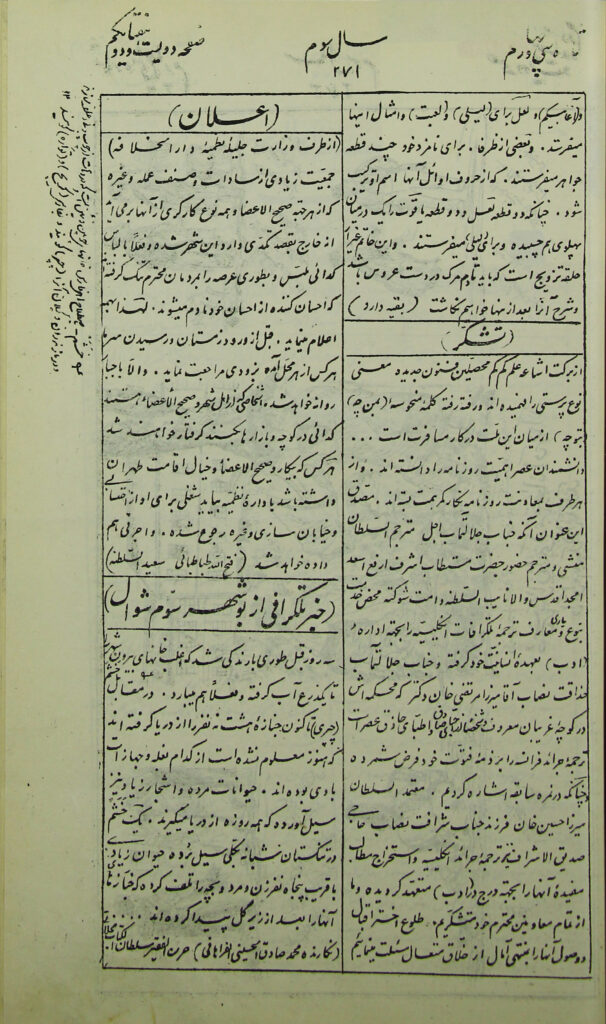 صفحه دویست و دوم
سال سوم
۲۷۱
میفرستند. و بعضی از ظرفا. برای نامزد خود چند قطعه
جواهر میفرستند. که از حروف اوائل آنها اسم او ترکیب
شود. چنانکه دو قطعه لعل و دو قطعه یاقوت را یک در میان
پهلوی هم چسبیده و برای میفرستند. و این خاتم غیر از
حلقه تزویج است که باید تا دم مرگ در دست عروس باشد
و شرح آنرا بعد از نها خواهم نگاشت (بقیه دارد)
(تشکر)
از برکت اشاعه علم کم کم محصلین فنون جدیده معنی
نوع پرستی را فهمیده اند و رفته رفته کلمه منحوسه (بمن چه)
(بتو چه) از میان این ملت در کار مسافرت است ...
دانشمندان عصر اهمیت روزنامه را دانسته اند. و از
هر طرف بمعاونت روزنامه نگار کمر همت بسته اند. مصدق
این عنوان آنکه جناب جلالتمآب اجل مترجم السلطان
منشی و مترجم حضور حضرت مستطاب اشرف ارفع اسعد
امجد اقدس والا نایب السلطنه دامت شوکته محض خدمت
بنوع و معارف ترجمه تلگرافات انگلیسیه را بجهة اداره
(ادب) بعهدهٔ انسانیت خود گرفته و جناب جلالتمآب
حذاقت نصاب آقا میرزا مرتضی خان دکتر که محکمه اش
در کوچه غریبان معروف اطبای حاذق عصر است
ترجمهٔ جرائد فرانسه را بر ذمهٔ فتوت خود فرض شمرده
چنانکه در نمره سابقه اشاره کردیم. معتمد السلطان
میرزا حسین خان فرزند جناب شرافت نصاب حاجی
صدیق الاشراف نیز ترجمهٔ جرائد انگلیسیه و استخراج مطالب
مفیدهٔ آنها را بجهة درج در (ادب) متعهد گردیده و ما
از تمام معاونین محترم خود متشکریم. طلوع اختر اقبال
و وصول آنها را بمنتهی آمال از خلاق متعال مسئلت مینمائیم
(اعلان)
(از طرف وزارت جلیلهٔ نظمیهٔ دار الخلافه)
جمعیت زیادی از سادات و صنف عمله و غیره
که از هر جهة صحیح الاعضاء و همه نوع کارگری از آنها برمی آید
از خارج بقصد تکدی وارد این شهر شده و فعلاً بلباس
گدائی ملبس و بطوری عرصه را بمردمان محترم تنگ گرفته
که احسان کننده از احسان خود نادم میشوند. لهذا
اعلام مینماید. قبل از ورود زمستان و رسیدن سرما
هر کس از هر محل آمده بزودی مراجعت نماید. والا باجبار
روانه خواهد شد. اشخاصیکه از اهل شهر و صحیح الاعضاء هستند
گدائی در کوچه و بازارها بکنند گرفتار خواهند شد
هر کس که بیکار و صحیح الاعضاء و خیال اقامت طهران
داشته باشد باداره نظمیه بیاید شغلی برای او از
و خیابان سازی و غیره رجوع شده. و اجرتی هم
داده خواهد شد (فتح الله طباطبائی سعید السلطنه)
(خبر تلگرافی از بوشهر سوم شوال)
سه روز قبل طوری بارندگی شد که اغلب خانهای بیرون شهر
تا یکذرع آب گرفته و فعلاً هم میبارد. در مقابل
تاکنون جنازهٔ هشت نه نفر را از دریا گرفته اند
که هنوز معلوم نشده است از کدام بغله و جهازات
بادی بوده اند. حیوانات مرده و اشجار زیاد نیز
سیل آورده که همه روزه از دریا میگیرند.
در تنگستان شبانه بکلی سیل برده حیوان زیادی
با قریب پنجاه نفر زن و مرد و بچه را تلف کرده که جنازهای
آنها را بعد از زیر گل پیدا کرده اند ......
(نگارنده محمد صادق الحسینی الفراهانی) حرره الفقیر سلطان الکتاب